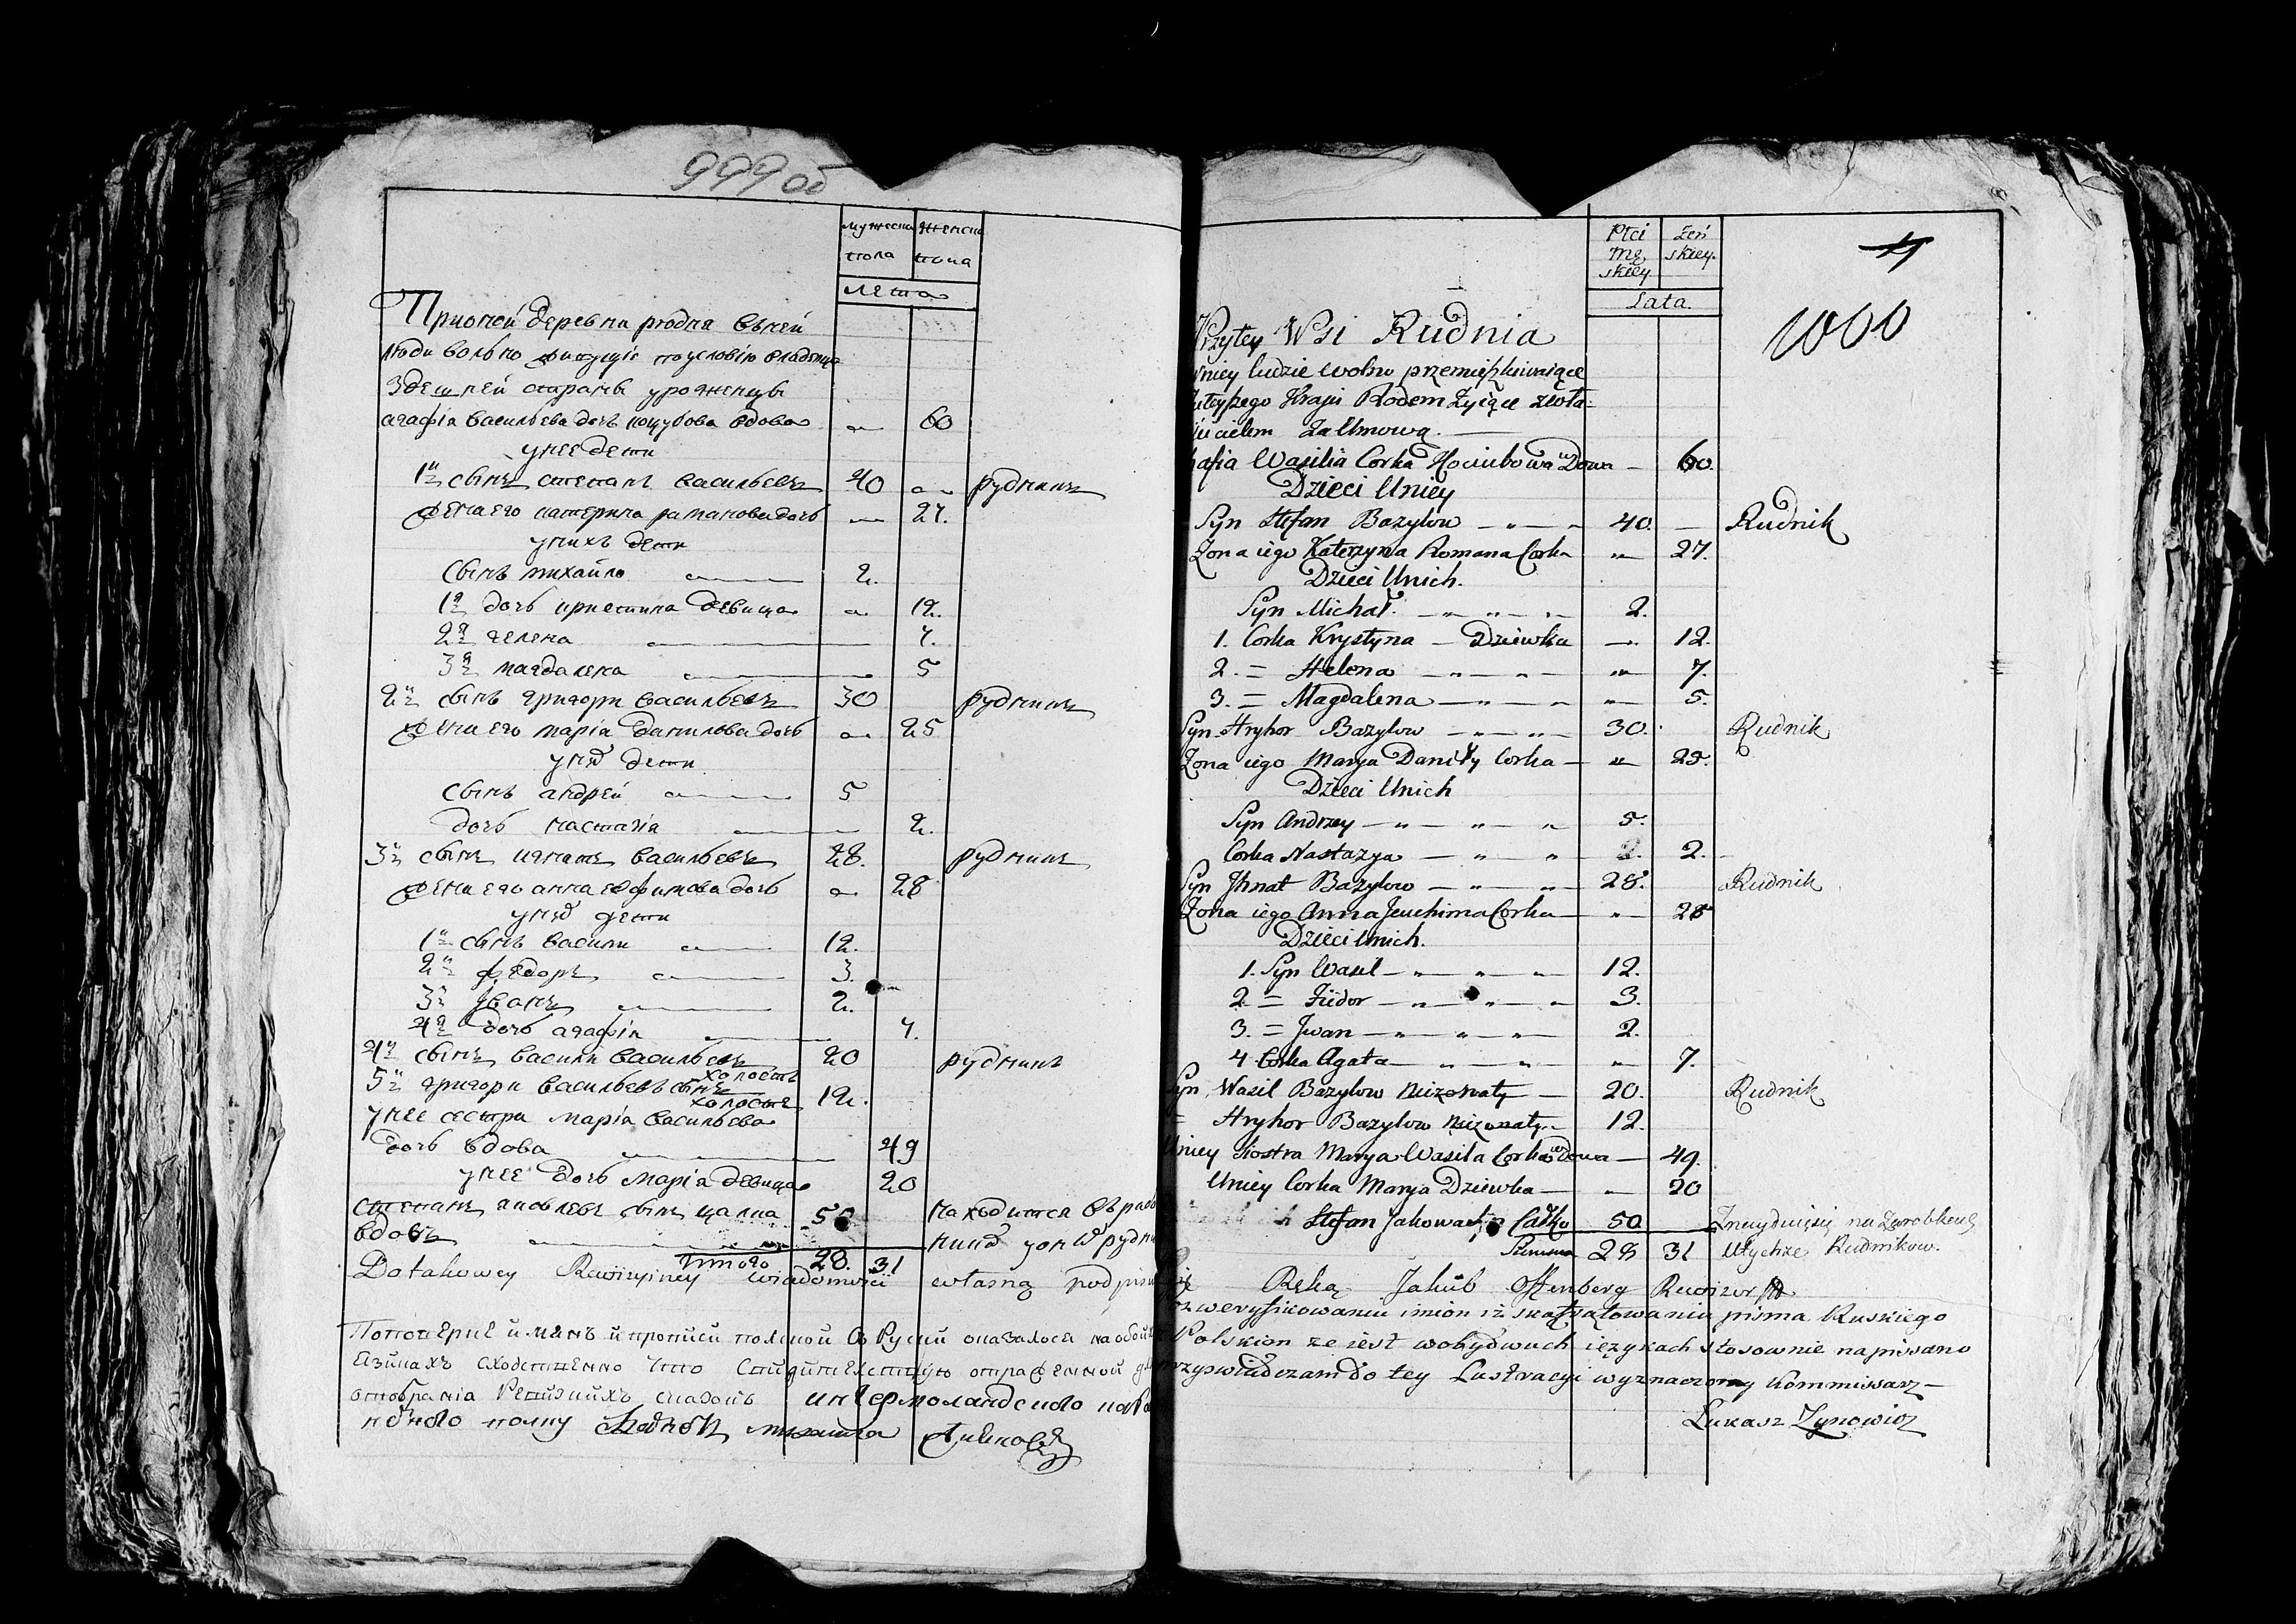 999 об
мужеска женска
пола пола
лета
При оной деревни рюдня в ней
люди вольно живущие по условию владельца
Здешней страны уроженцы
агафia васильева дочь коцубова вдова — 60
у нее дети
1й сынъ степанъ васильевъ 40 — рудникъ
жена его катерина раманова дочь — 27.
у нихъ дети
сынъ михайло — 2.
1я дочь кристина девица — 12.
2я гелена — 7.
3я магдалена — 5
2й сынъ григори васильевъ 30 рудникъ
жена его марiа данилова дочь — 25
у них дети
сынъ андрей — 5
дочь настазiа — 2.
3й сынъ игнатъ васильевъ 28. рудникъ
жена его анна ефимова дочь — 28
у них дети
1й сынъ васили — 12.
2й федоръ — 3.
3й Иванъ — 2.
4я дочь агафiя — 7.
4й сынъ васили васильевъ холостъ 20 рудникъ
5й григори васильевъ сынъ холостъ 12.
у нее сестра марiа васильева
дочь вдова — 49
у нее дочь марiа девица 20
степанъ яковлевъ сынъ цалка 50 находится въ
вдовъ — рудни
итого 28. 31
Do takowey Rewizyiney wiadomosci własną podpisu
языкахъ сходственно что
Ptci Mę skiey Żeń skiey.
Lata.
1000
Przytey Wsi Rudnia
wniey ludzie wolno przemieszkiwaiące
tuteyszego Kraju Rodem Zyiące zwła-
scicielem Za Umową. —
hafia Wasilia Corka Kociubowa wDowa — 60.
Dzieci Uniey
Syn Stefan Bazylow — 40. — Rudnik
Zona iego Katerzyna Romana Corka „ — 27.
Dzieci Unich.
Syn Michał. — 2.
1. Corka Krystyna — Dziewka — 12.
2. = Helena — „ — 7.
3. = Magdalena — „ — 5.
Syn Hryhor Bazylow — 30. Rudnik
Zona iego Marya Daniły Corka — „ — 25.
Dzieci Unich
Syn Andrzey — 5.
Corka Nastazya — 2.
Syn Jhnat Bazylow — 28. Rudnik
Zona iego Anna Jeuchima Corka — „ — 28
Dzieci Unich.
1. Syn Wasil — 12.
2. = Fiidor — 3.
3. = Jwan — 2.
4 Corka Agata — „ — 7.
Syn Wasil Bazylow Nieżonaty — 20. Rudnik
= Hryhor Bazylow Nieżonaty — 12.
Uniey Siostra Marya Wasila Corka wDowa — 49.
Uniey Corka Marya Dziewka — „ — 20
Stefan Jakowa Całko 50 Znayduiesię na Zarobkach
Summa 28 31 Utychże Rudnikow.
Ręką Jakub Offenberg Rewizor
zweryfikowaniu imion pisma Ruskiego
Polskim ze iest wobydwuch ięzykach stosownie napisano
przyswiadczam do tey Lustracyi wyznaczony Kommissarz —
Łukasz Zynowicz